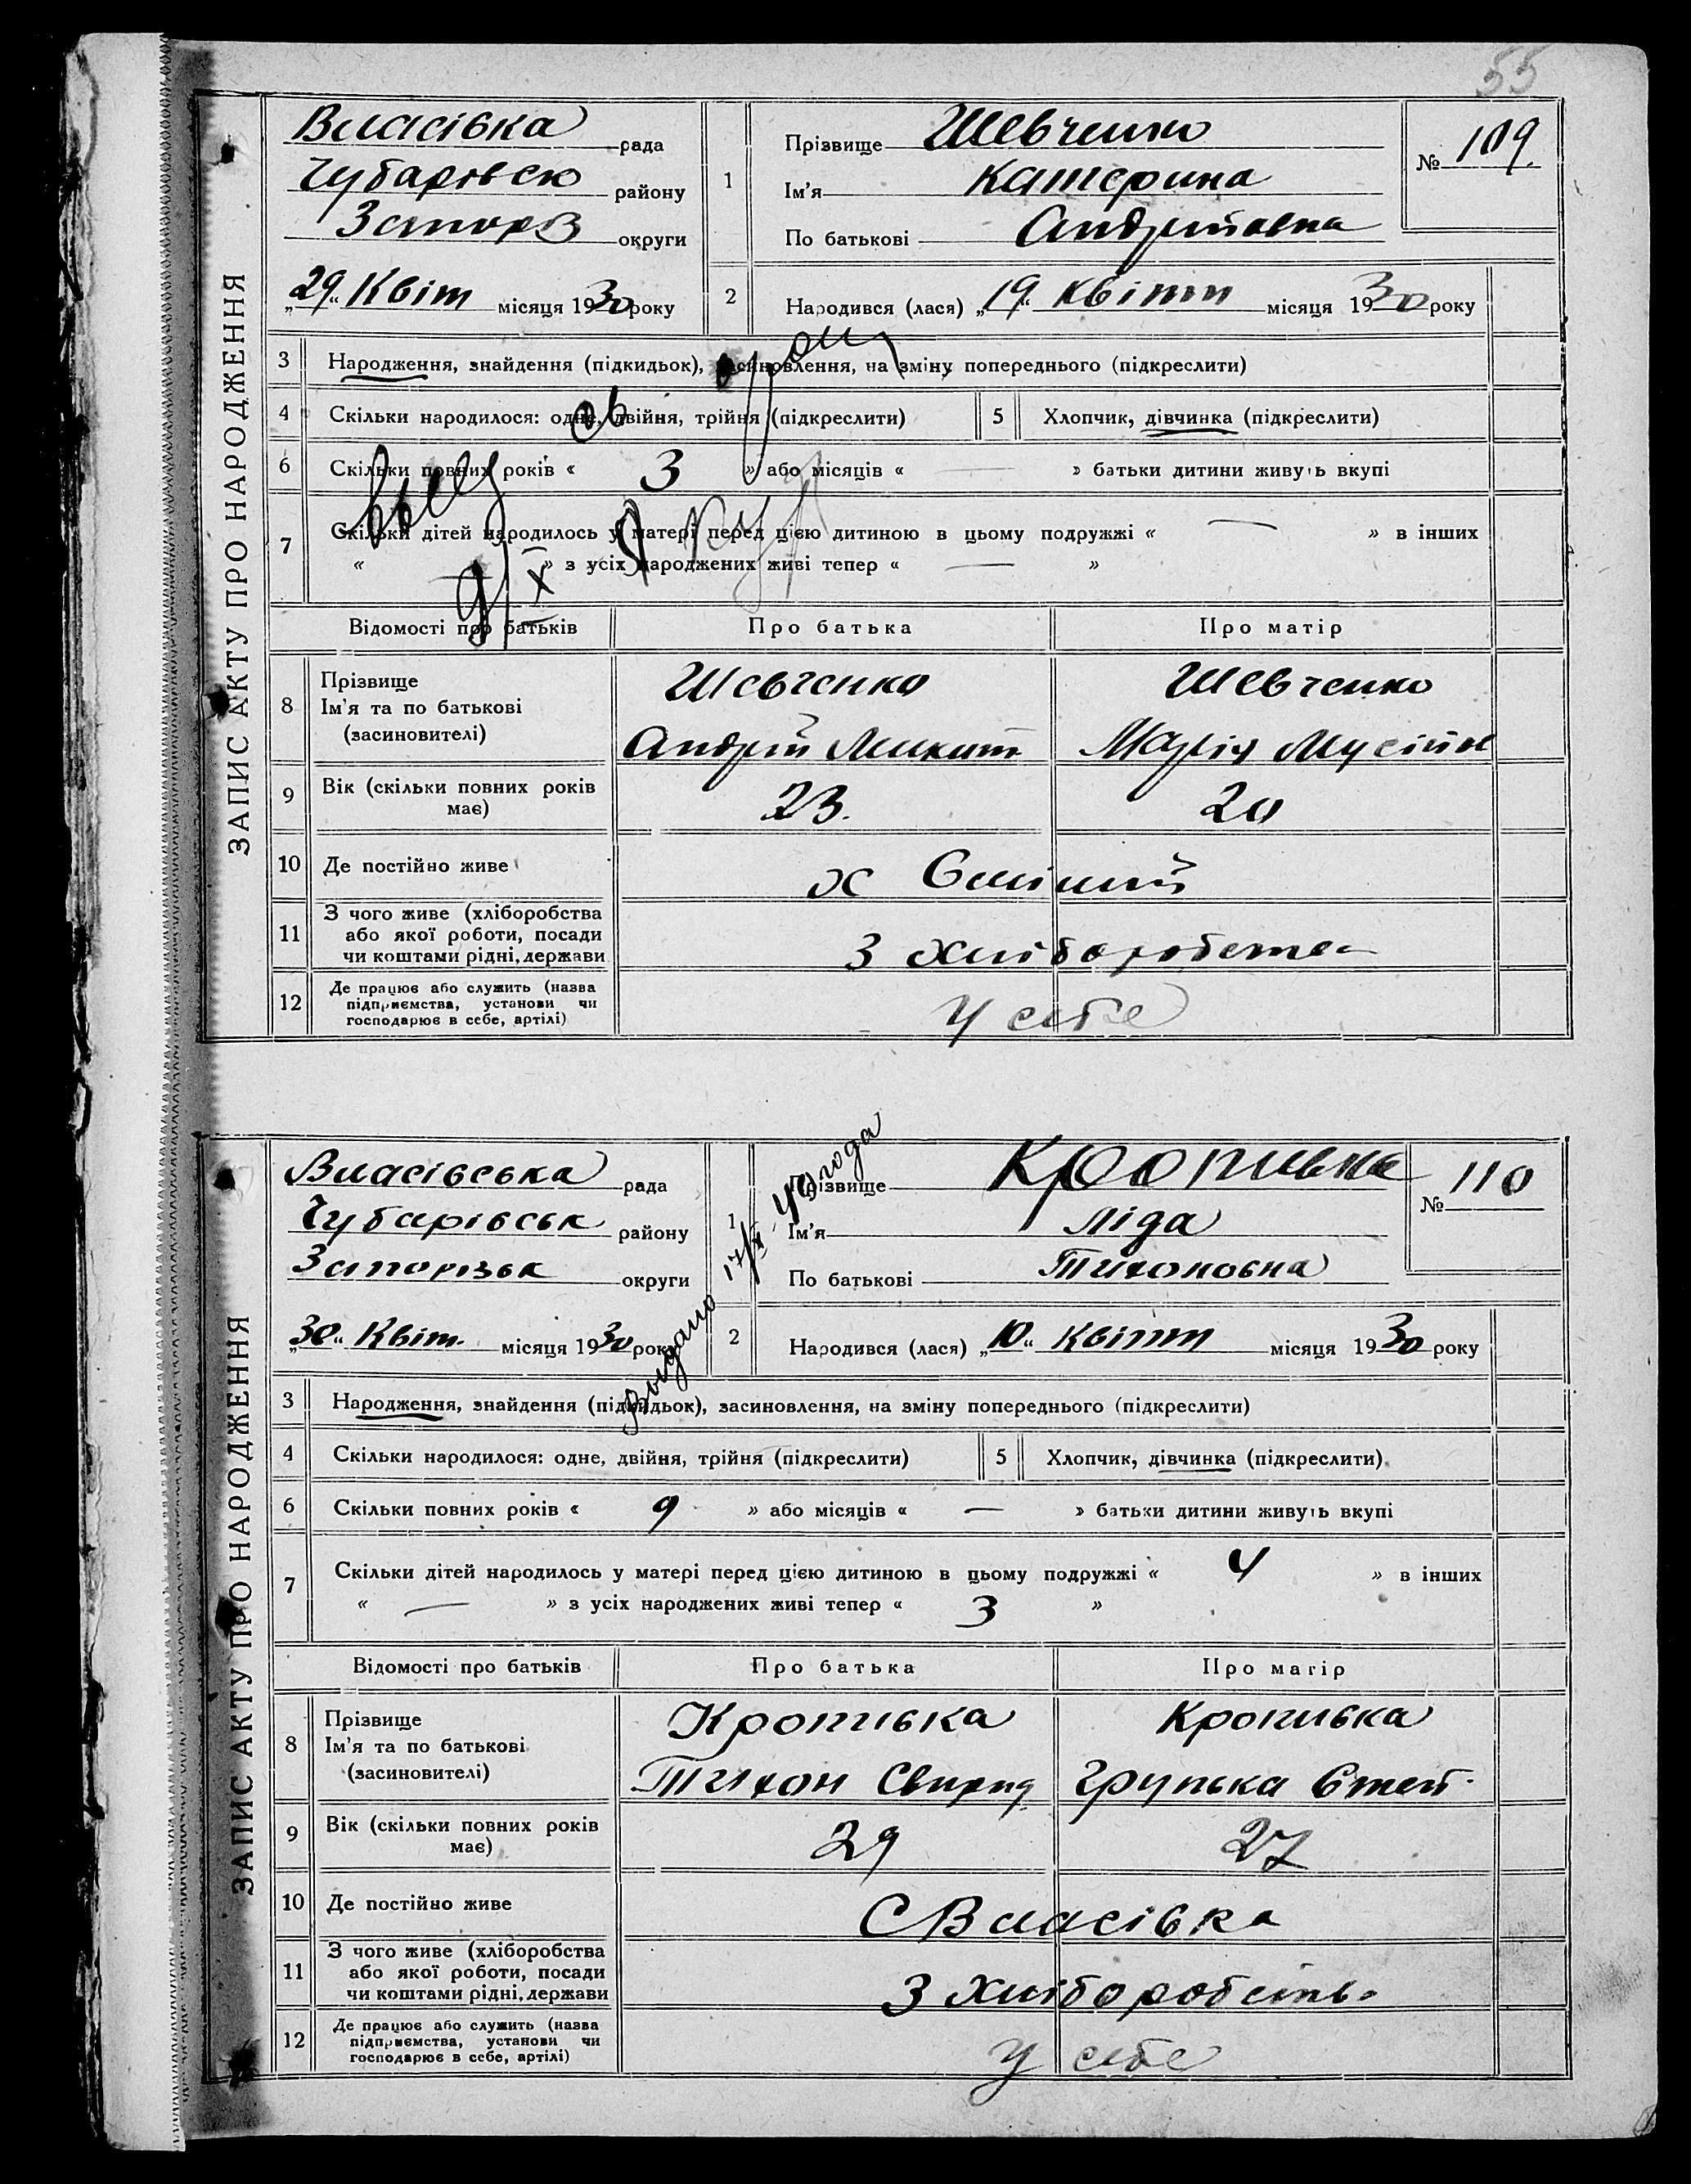 55
ЗАПИС АКТУ ПРО НАРОДЖЕННЯ
Власівка рада
Чубарівськ району
Запоріз округи
„29“ Квіт місяця 1930 року
1 Прізвище Шевченко
Ім'я Катерина
По батькові Андріївна
№ 109.
2 Народився (лася) „19“ квітн місяця 1930 року
3 Народження, знайдення (підкидьок), засиновлення, на зміну попереднього (підкреслити)
4 Скільки народилося: одне, двійня, трійня (підкреслити) 5 Хлопчик, дівчинка (підкреслити)
6 Скільки повних років « 3 » або місяців « — » батьки дитини живуть вкупі
7 Скільки дітей народилось у матері перед цією дитиною в цьому подружжі « — » в інших
« — » з усіх народжених живі тепер « — »
Відомості про батьків Про батька Про матір
8 Прізвище Шевченко Шевченко
Ім'я та по батькові
(засновителі) Андрій Микит Марія Мусійн
9 Вік (скільки повних років
має) 23. 20
10 Де постійно живе х
11 З чого живе (хліборобства
або якої роботи, посади
чи коштами рідні, держави З хліборобства
12 Де працює або служить (назва
підприємства, установи чи
господарює в себе, артілі) У себе
ЗАПИС АКТУ ПРО НАРОДЖЕННЯ
Власівська рада
Чубарівськ району
Запорізьк округи
„30“ Квіт. місяця 1930 року
Выдано 17/X 40 года
1 Прізвище Кропивка
Ім'я Ліда
По батькові Тихоновна
№ 110
2 Народився (лася) „10“ квітн місяця 1930 року
3 Народження, знайдення (підкидьок), засиновлення, на зміну попереднього (підкреслити)
4 Скільки народилося: одне, двійня, трійня (підкреслити) 5 Хлопчик, дівчинка (підкреслити)
6 Скільки повних років « 9 » або місяців « — » батьки дитини живуть вкупі
7 Скільки дітей народилось у матері перед цією дитиною в цьому подружжі « 4 » в інших
« — » з усіх народжених живі тепер « 3 »
Відомості про батьків Про батька Про матір
8 Прізвище Кропивка Кропивка
Ім'я та по батькові
(засиновителі) Тихон Свирид Групька Степ
9 Вік (скільки повних років
має) 29 27
10 Де постійно живе С Власівка
11 З чого живе (хліборобства
або якої роботи, посади
чи коштами рідні, держави З хліборобств
12 Де працює або служить (назва
підприємства, установи чи
господарює в себе, артілі) У себе